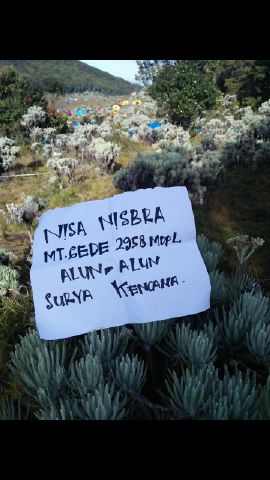 NISA NISBRA
MT. GEDE 2958 MDPL
ALUN-ALUN
SURYA KENCANA.